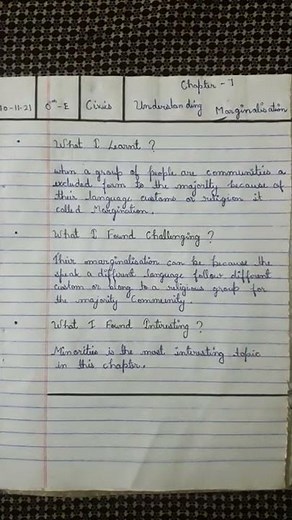 Chapter - 7
10-11-21 8th-E Civics Understanding Marginalisation
What I Learnt ?
when a group of people are communities a
excluded form to the majority because of
their language customs or religion it
called Margination.
What I Found Challenging ?
Their marginalisation can be because the
speak a different language follow different
custom or blong to a religious group for
the majority Community.
What I Found Intresting ?
Minorities is the most intersting topic
in this chapter.